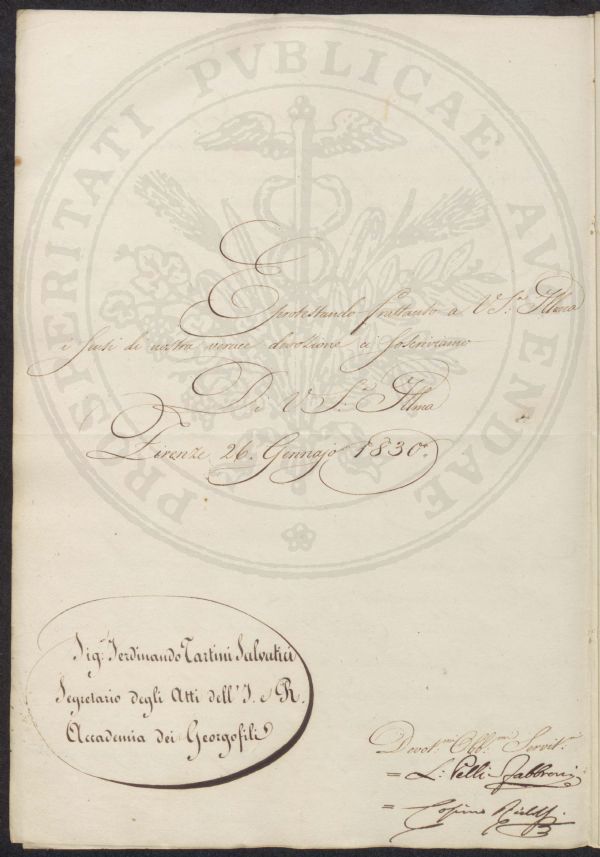 PROSPERITATI PVBLICAE AVGENDAE
E protestando frattanto a V. S.ª Illma
i sensi di nostra verace devozione ci soscriviamo
Di V. S.ª Illma
Firenze 26. Gennajo 1830.
Sig.r Ferdinando Tartini Salvatici
Segretario degli Atti dell' I. e R.
Accademia dei Georgofili
Devot.mi Obb.mi Servit.ri
= L: Pelli Fabbroni
= Cosimo Ridolfi